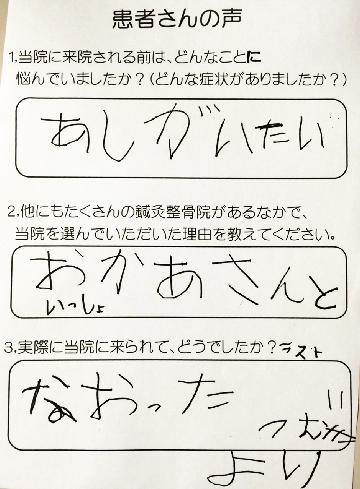 患者さんの声
1.当院に来院される前は、どんなことに
悩んでいましたか?(どんな症状がありましたか?)
あしがいたい
2.他にもたくさんの鍼灸整骨院があるなかで、
当院を選んでいただいた理由を教えてください。
おかあさんと
いっしょ
3.実際に当院に来られて、どうでしたか?ラスト
なおった
より